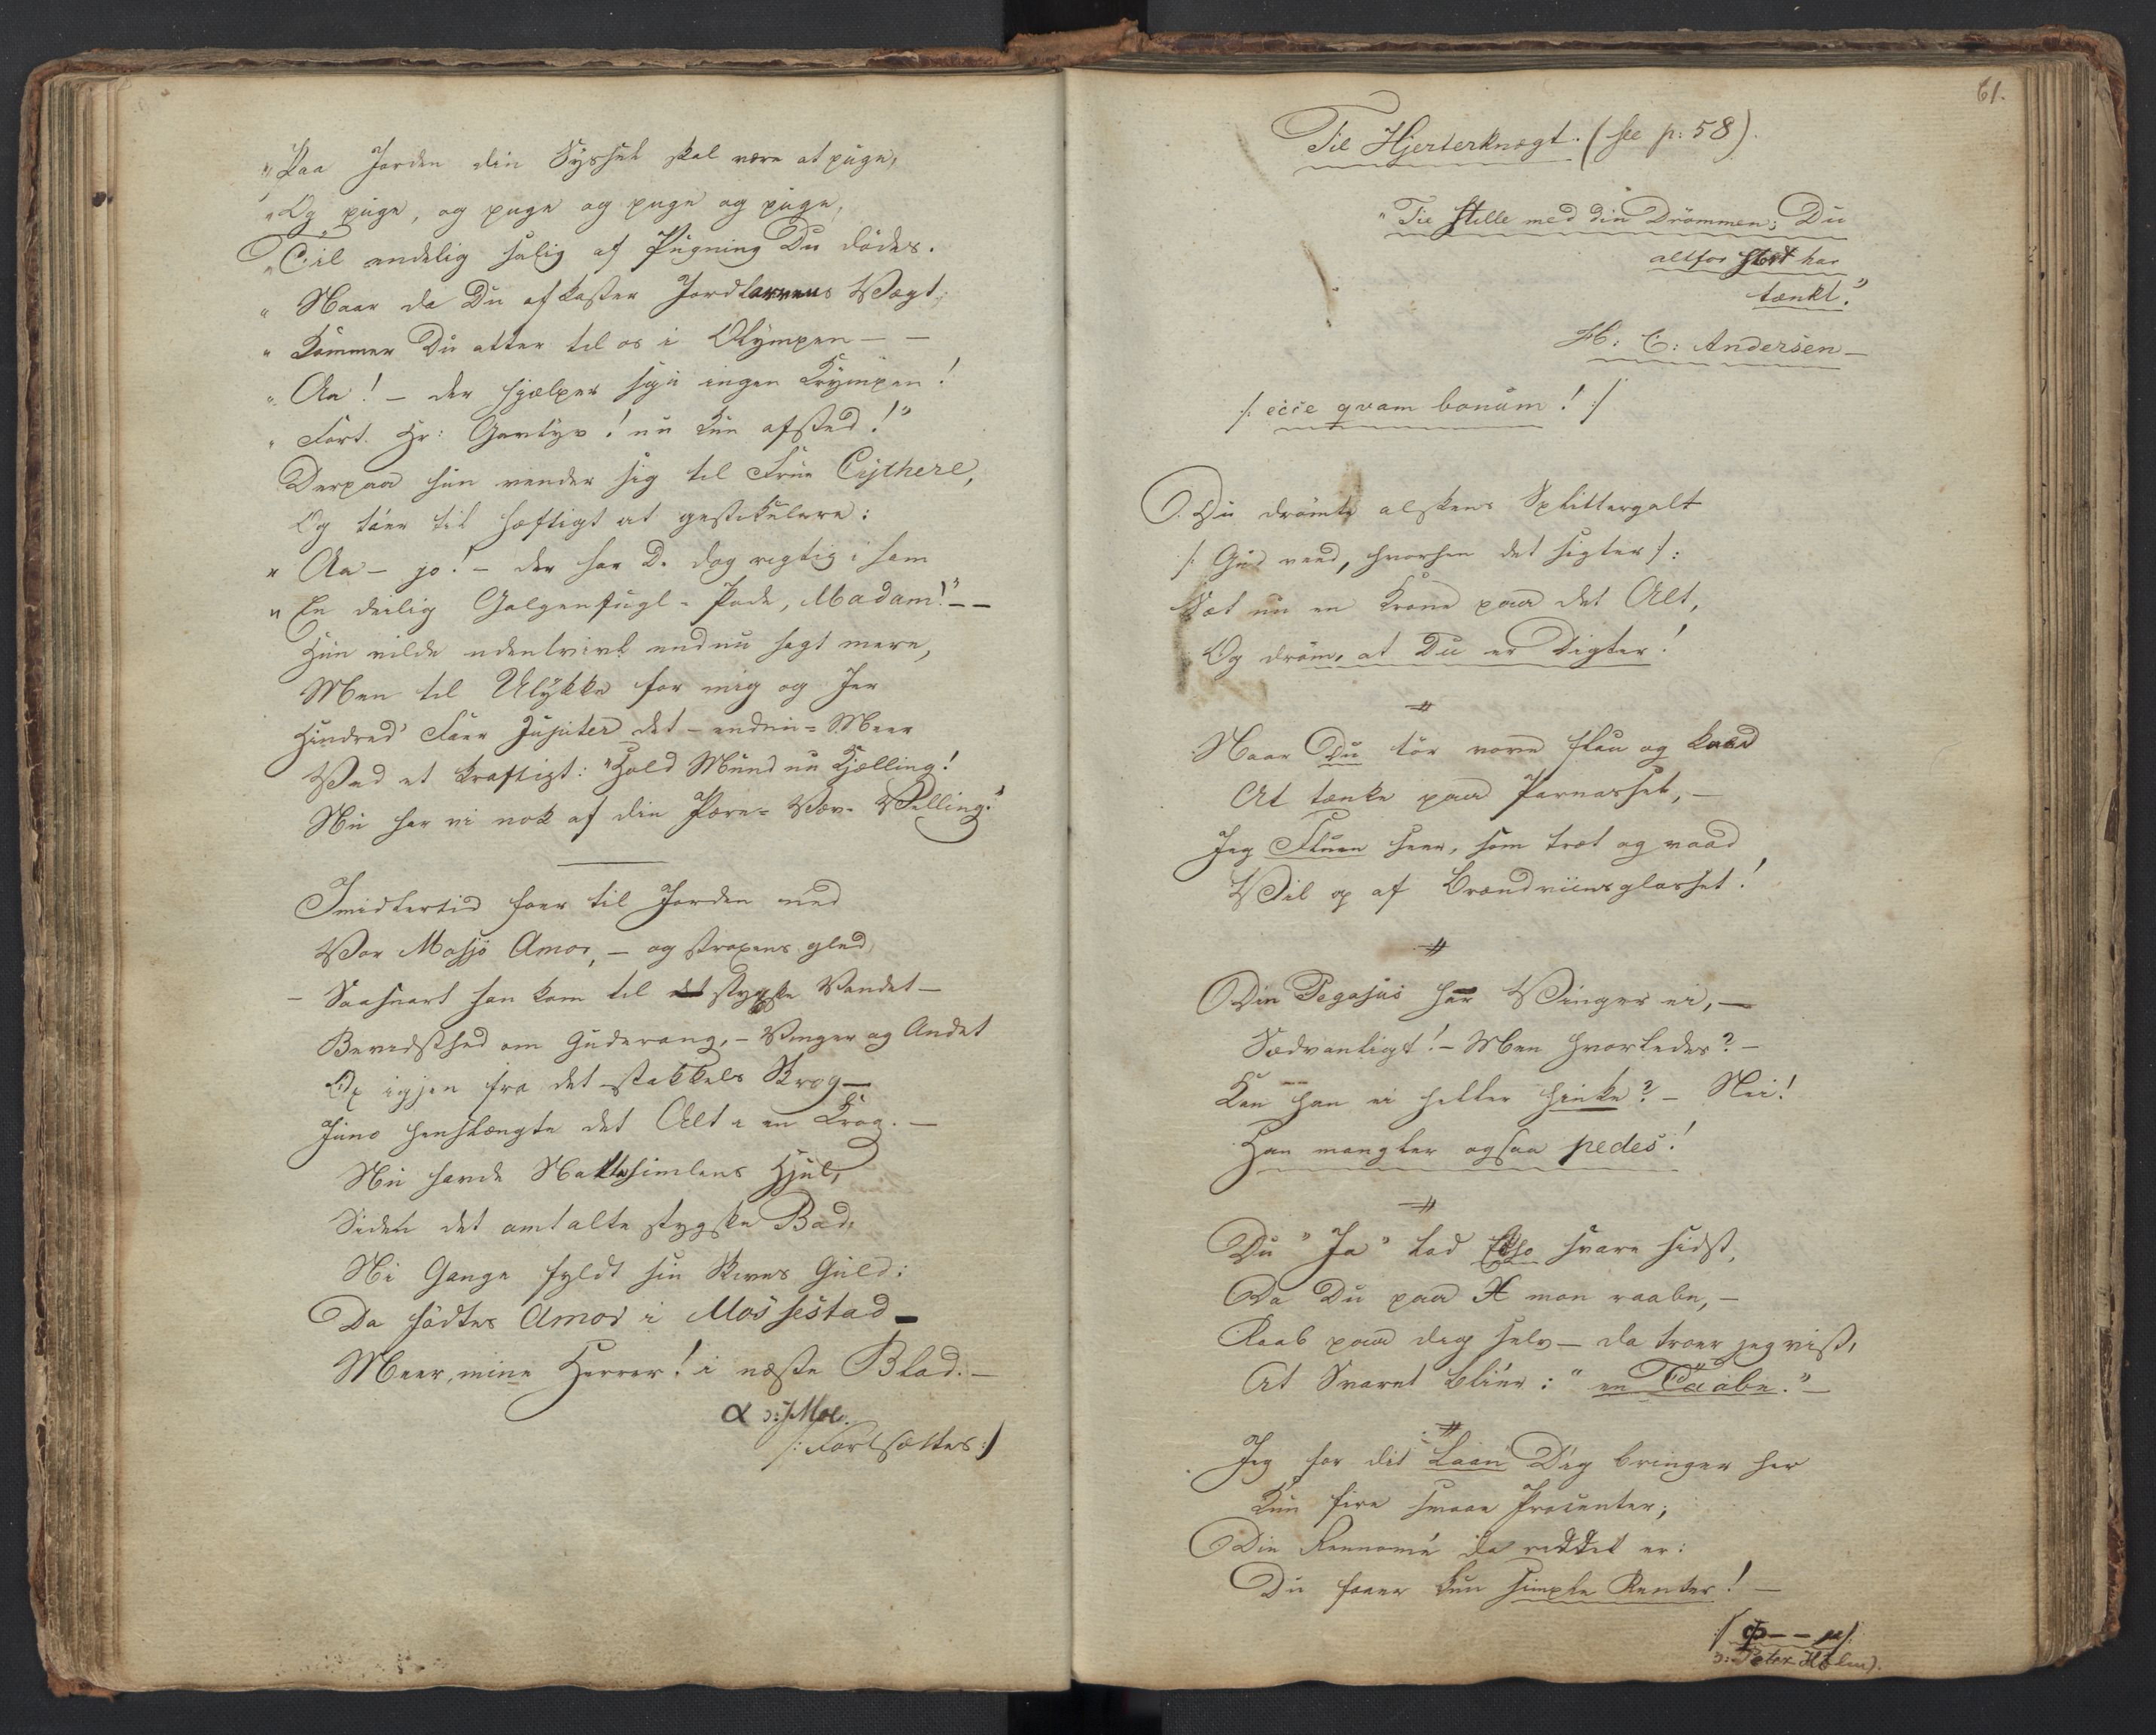 "Paa Jorden din Syssel skal være at puge,
"Og puge, og puge og puge og puge,
"Til endelig salig af Pugning Du dödes.
"Naar da Du afkaster Jordlarvens Vægt,
"Kommer Du atter til os i Olympen – –
"Aa! – der hjælper sgu ingen Krympen!
"Fort. Hr: Gavtyv! nu kun afsted!"
Derpaa hun vender sig til Frue Cythere,
Og taer til hæftigt at gestikulere:
"Aa – jo! – der har D. dog rigtig i ham
"En deilig Galgenfugl-Pode, Madam!" – –
Hun vilde udentvivl endnu sagt mere,
Men til Ulykke for mig og Jer
Hindred' Faer Jupiter det – endnu-Meer
Ved et kraftigt: "Hold Mund nu Kjælling!
Nu har vi nok af din Pære-Væv-Velling."
Imidlertid foer til Jorden ned
Vor Mosjö Amor, – og straxens gled
– Saasnart han kom til det stygske Vandet –
Bevidsthed om Guderang, – Vinger og Andet
Op igjen fra det stakkels Skrog –
Juno henslængte det Alt i en Krog. –
Nu havde Nattehimlens Hjul,
Siden det omtalte stygske Bad,
Ni Gange fyldt sin Skives Guld:
Da födtes Amor i Mossestad –
Meer, mine Herrer! i næste Blad. –
α ɔ: J Moe.
/: Fortsættes :/
61.
Til Hjerterknægt. (see p: 58).
"Tie stille med din Drömmen; Du
altfor stort har
tænkt."
H: C: Andersen –
/: ecce qvam bonum! :/
Du drömte alskens Splittergalt
/: Gud veed, hvorhen det sigter :/:
Sæt nu en Krone paa det Alt,
Og dröm, at Du er Digter!
Naar Du tör være flau og kaad
At tænke paa Parnasset, –
Jeg Fluen seer, som træt og vaad
Vil op af Brændviinsglasset!
Din Pegasus har Vinger ei, –
Sædvanligt! – Men hvorledes? –
Kan han ei heller hinke? – Nei!
Han mangler ogsaa pedes!
Du "Ja" lod Echo svare sidst,
Da Du paa X mon raabe, –
Raab paa dig selv – da troer jeg vist,
At Svaret blier: "en Taabe." –
Jeg for dit Laan Dig bringer her
Kun fire smaae Procenter;
Din Renomé da reddet er:
Du faaer kun simple Renter! –
/: φ – – n :/
ɔ: Peter Holm).